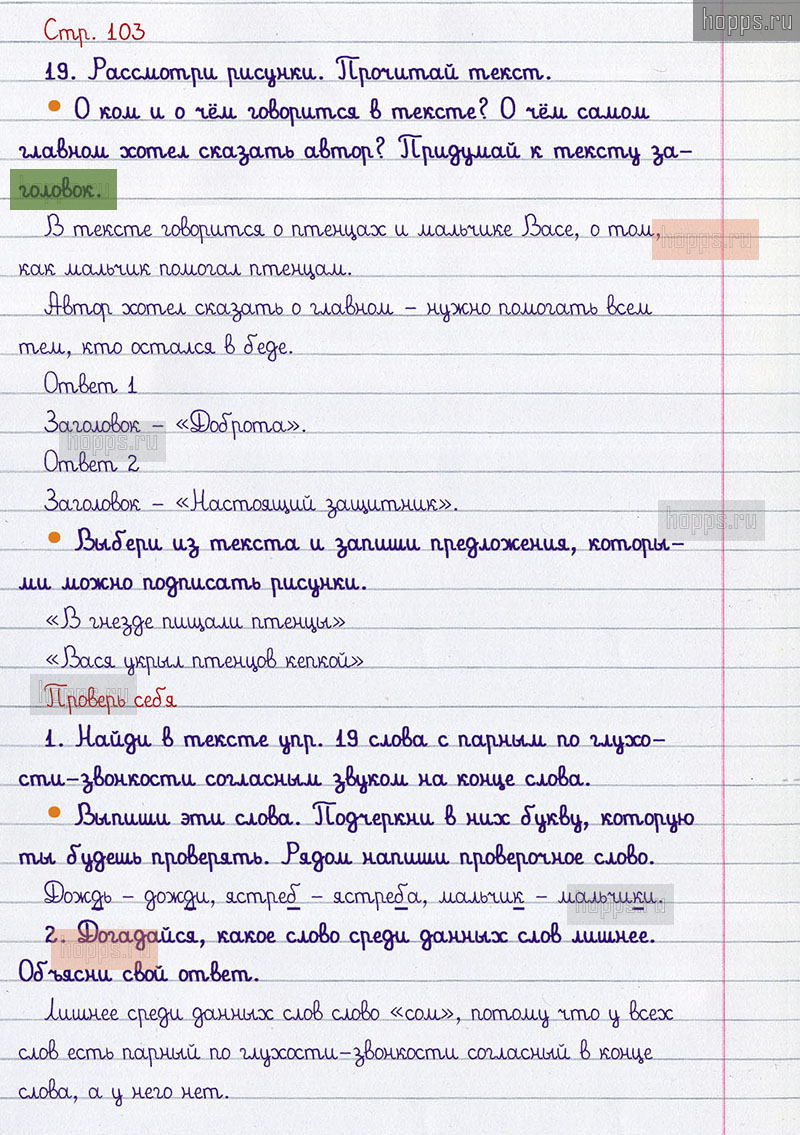 hopps.ru
Стр. 103
19. Рассмотри рисунки. Прочитай текст.
• О ком и о чём говорится в тексте? О чём самом
главном хотел сказать автор? Придумай к тексту за-
головок.
В тексте говорится о птенцах и мальчике Васе, о том,
hopps.ru
как мальчик помогал птенцам.
Автор хотел сказать о главном – нужно помогать всем
тем, кто остался в беде.
Ответ 1
Заголовок – «Доброта».
hopps.ru
Ответ 2
Заголовок – «Настоящий защитник».
hopps.ru
• Выбери из текста и запиши предложения, которы-
ми можно подписать рисунки.
«В гнезде пищали птенцы»
«Вася укрыл птенцов кепкой»
hopps.ru
Проверь себя
1. Найди в тексте упр. 19 слова с парным по глухо-
сти-звонкости согласным звуком на конце слова.
• Выпиши эти слова. Подчеркни в них букву, которую
ты будешь проверять. Рядом напиши проверочное слово.
Дождь – дожди, ястреб – ястреба, мальчик – мальчики.
hopps.ru
2. Догадайся, какое слово среди данных слов лишнее.
hopps.ru
Объясни свой ответ.
Лишнее среди данных слов слово «сом», потому что у всех
слов есть парный по глухости-звонкости согласный в конце
слова, а у него нет.